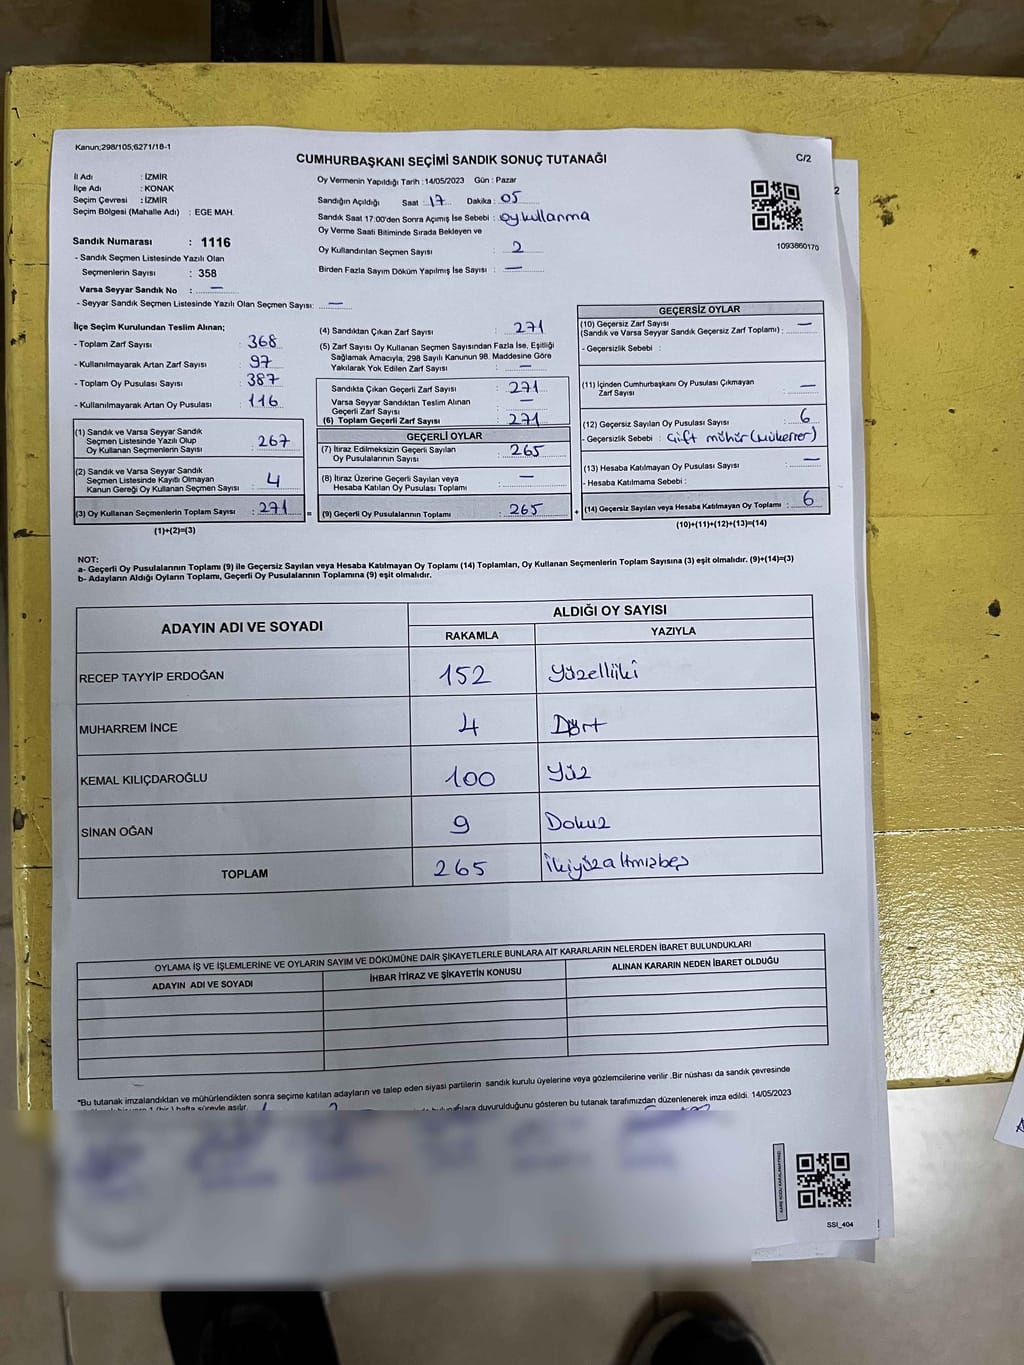 Kanun;298/105;6271/18-1
CUMHURBAŞKANI SEÇİMİ SANDIK SONUÇ TUTANAĞI
C/2
2
İl Adı : İZMİR
İlçe Adı : KONAK
Seçim Çevresi : İZMİR
Seçim Bölgesi (Mahalle Adı) : EGE MAH.
Oy Vermenin Yapıldığı Tarih : 14/05/2023 Gün : Pazar
Sandığın Açıldığı Saat : 17 Dakika : 05
Sandık Saat 17:00'den Sonra Açımış İse Sebebi : oy kullanma
Oy Verme Saati Bitiminde Sırada Bekleyen ve
Oy Kullandırılan Seçmen Sayısı : 2
Birden Fazla Sayım Döküm Yapılmış İse Sayısı : —
1093860170
Sandık Numarası : 1116
- Sandık Seçmen Listesinde Yazılı Olan
Seçmenlerin Sayısı : 358
Varsa Seyyar Sandık No : —
- Seyyar Sandık Seçmen Listesinde Yazılı Olan Seçmen Sayısı: —
İlçe Seçim Kurulundan Teslim Alınan;
- Toplam Zarf Sayısı : 368
- Kullanılmayarak Artan Zarf Sayısı : 97
- Toplam Oy Pusulası Sayısı : 387
- Kullanılmayarak Artan Oy Pusulası : 116
(1) Sandık ve Varsa Seyyar Sandık
Seçmen Listesinde Yazılı Olup
Oy Kullanan Seçmenlerin Sayısı : 267
(2) Sandık ve Varsa Seyyar Sandık
Seçmen Listesinde Kayıtlı Olmayan
Kanun Gereği Oy Kullanan Seçmen Sayısı : 4
(3) Oy Kullanan Seçmenlerin Toplam Sayısı : 271
(1)+(2)=(3)
(4) Sandıktan Çıkan Zarf Sayısı : 271
(5) Zarf Sayısı Oy Kullanan Seçmen Sayısından Fazla İse, Eşitliği
Sağlamak Amacıyla, 298 Sayılı Kanunun 98. Maddesine Göre
Yakılarak Yok Edilen Zarf Sayısı : —
Sandıkta Çıkan Geçerli Zarf Sayısı : 271
Varsa Seyyar Sandıktan Teslim Alınan
Geçerli Zarf Sayısı : —
(6) Toplam Geçerli Zarf Sayısı : 271
GEÇERLİ OYLAR
(7) İtiraz Edilmeksizin Geçerli Sayılan
Oy Pusulalarının Sayısı : 265
(8) İtiraz Üzerine Geçerli Sayılan veya
Hesaba Katılan Oy Pusulası Toplamı : —
= (9) Geçerli Oy Pusulalarının Toplamı : 265
GEÇERSİZ OYLAR
(10) Geçersiz Zarf Sayısı
(Sandık ve Varsa Seyyar Sandık Geçersiz Zarf Toplamı) : —
- Geçersizlik Sebebi :
(11) İçinden Cumhurbaşkanı Oy Pusulası Çıkmayan
Zarf Sayısı : —
(12) Geçersiz Sayılan Oy Pusulası Sayısı : 6
- Geçersizlik Sebebi : Çift mühür (Mükerrer)
(13) Hesaba Katılmayan Oy Pusulası Sayısı : —
- Hesaba Katılmama Sebebi :
+ (14) Geçersiz Sayılan veya Hesaba Katılmayan Oy Toplamı : 6
(10)+(11)+(12)+(13)=(14)
NOT:
a- Geçerli Oy Pusulalarının Toplamı (9) ile Geçersiz Sayılan veya Hesaba Katılmayan Oy Toplamı (14) Toplamları, Oy Kullanan Seçmenlerin Toplam Sayısına (3) eşit olmalıdır. (9)+(14)=(3)
b- Adayların Aldığı Oyların Toplamı, Geçerli Oy Pusulalarının Toplamına (9) eşit olmalıdır.
ADAYIN ADI VE SOYADI
ALDIĞI OY SAYISI
RAKAMLA YAZIYLA
RECEP TAYYİP ERDOĞAN 152 Yüzelliiki
MUHARREM İNCE 4 Dört
KEMAL KILIÇDAROĞLU 100 Yüz
SİNAN OĞAN 9 Dokuz
TOPLAM 265 ikiyüzaltmışbeş
OYLAMA İŞ VE İŞLEMLERİNE VE OYLARIN SAYIM VE DÖKÜMÜNE DAİR ŞİKAYETLERLE BUNLARA AİT KARARLARIN NELERDEN İBARET BULUNDUKLARI
ADAYIN ADI VE SOYADI İHBAR İTİRAZ VE ŞİKAYETİN KONUSU ALINAN KARARIN NEDEN İBARET OLDUĞU
*Bu tutanak imzalandıktan ve mühürlendikten sonra seçime katılan adayların ve talep eden siyasi partilerin sandık kurulu üyelerine veya gözlemcilerine verilir .Bir nüshası da sandık çevresinde
1 (bir) hafta süreyle asılır.
duyurulduğunu gösteren bu tutanak tarafımızdan düzenlenerek imza edildi. 14/05/2023
SSI_404